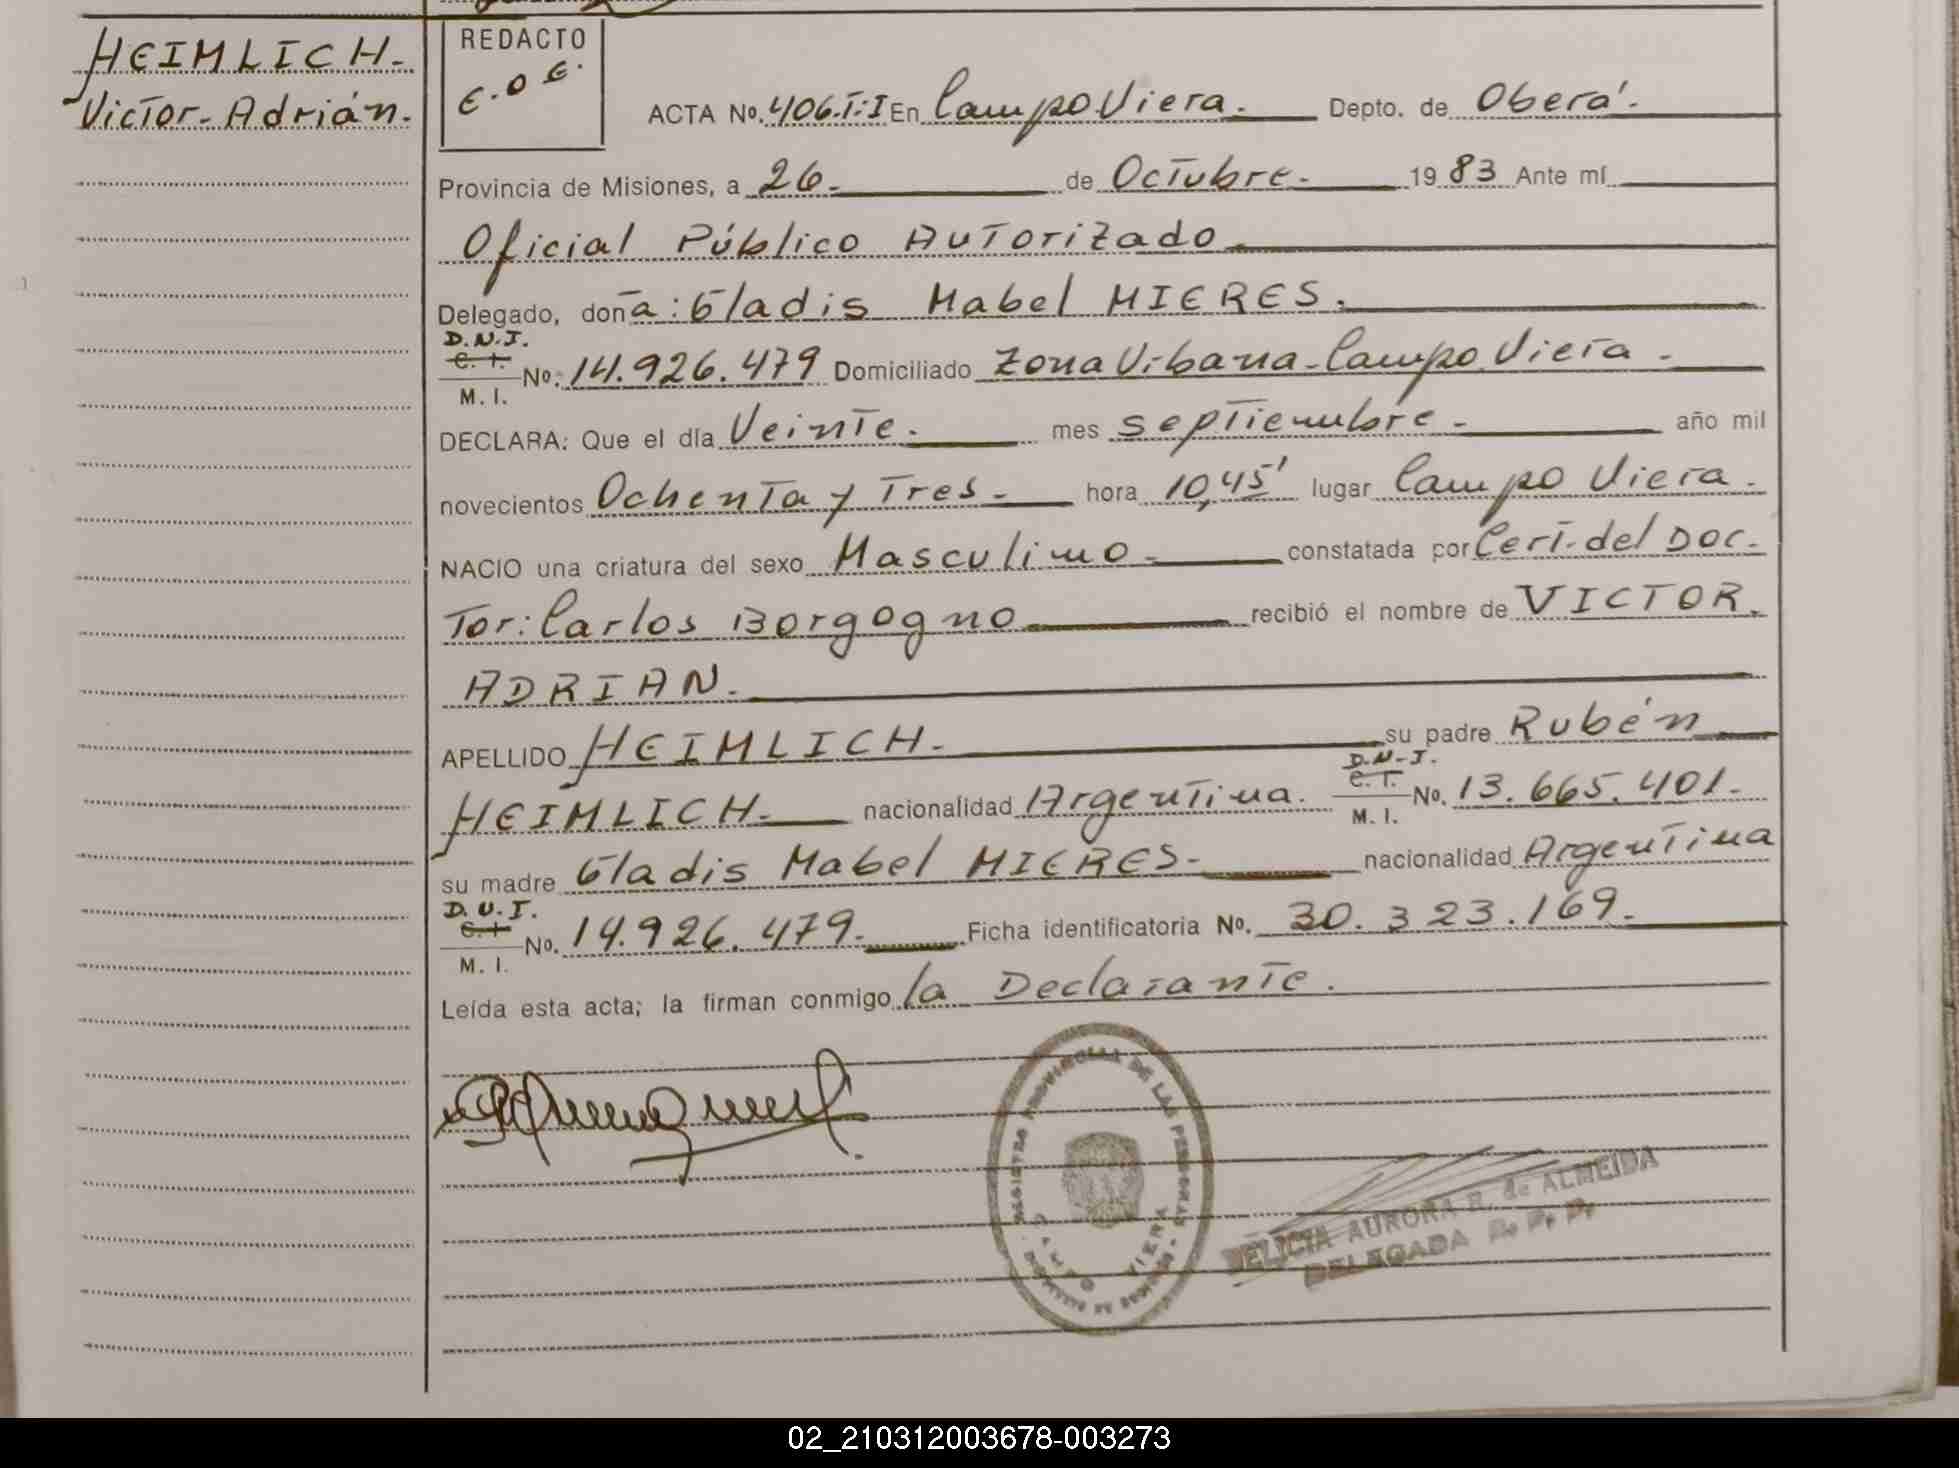 HEIMLICH.
Victor-Adrián.
REDACTO
E.O.E.
ACTA No. 406.T:I En Campo Viera. Depto. de Oberá.
Provincia de Misiones, a 26. de Octubre. 19 83 Ante mí
Oficial Público Autorizado
Delegado, doña: Gladis Mabel MIERES.
D.N.I.
C. I.
M. I.
No. 14.926.479 Domiciliado Zona Urbana-Campo Viera.
DECLARA: Que el día Veinte. mes septiembre. año mil
novecientos Ochenta y Tres. hora 10,45' lugar Campo Viera.
NACIO una criatura del sexo Masculino constatada por Cert. del Doc-
tor: Carlos Borgogno recibió el nombre de VICTOR
ADRIAN.
APELLIDO HEIMLICH. su padre Rubén
HEIMLICH. nacionalidad Argentina. D.N.I. C. I. M. I. No. 13.665.401.
su madre Gladis Mabel MIERES- nacionalidad Argentina
D.N.I.
C. I.
M. I.
No. 14.926.479. Ficha identificatoria No. 30.323.169.
Leída esta acta; la firman conmigo la Declarante.
REGISTRO PROVINCIAL DE LAS PERSONAS
CAMPO VIERA
DELICIA AURORA R. de ALMEIDA
DELEGADA R. P. P.
02_210312003678-003273